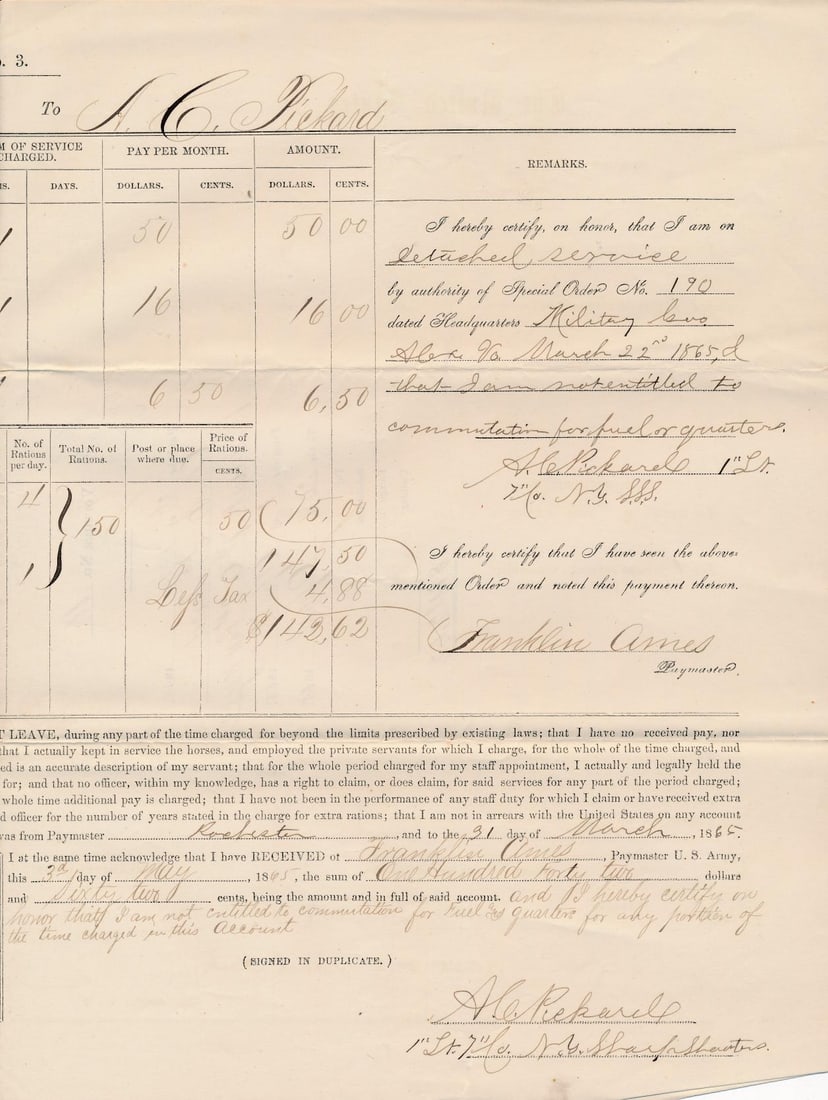 . 3.
To A. C. Pickard
M OF SERVICE CHARGED. PAY PER MONTH. AMOUNT. REMARKS.
S. DAYS. DOLLARS. CENTS. DOLLARS. CENTS.
1 50 50 00
1 16 16 00
1 6 50 6,50
No. of Rations per day. Total No. of Rations. Post or place where due. Price of Rations.
CENTS.
4 150 50 75,00
1
147,50
Less Tax 4,88
$142,62
I hereby certify, on honor, that I am on
Detached service
by authority of Special Order No. 190
dated Headquarters Military Gov.
Alex. Va. March 22nd 1865, &
that I am not entitled to
commutation for fuel or quarters.
A. C. Pickard 1" Lt.
7" Co. N.Y. S.S.S.
I hereby certify that I have seen the above-
mentioned Order and noted this payment thereon.
Franklin Ames
Paymaster.
T LEAVE, during any part of the time charged for beyond the limits prescribed by existing laws; that I have no received pay, nor
that I actually kept in service the horses, and employed the private servants for which I charge, for the whole of the time charged, and
ed is an accurate description of my servant; that for the whole period charged for my staff appointment, I actually and legally held the
for; and that no officer, within my knowledge, has a right to claim, or does claim, for said services for any part of the period charged;
whole time additional pay is charged; that I have not been in the performance of any staff duty for which I claim or have received extra
d officer for the number of years stated in the charge for extra rations; that I am not in arrears with the United States on any account
was from Paymaster Rochester, and to the 31 day of March, 1865.
I at the same time acknowledge that I have RECEIVED of Franklin Ames, Paymaster U. S. Army,
this 3d day of May, 1865, the sum of One Hundred Forty two dollars
and Sixty two cents, being the amount and in full of said account. and I hereby certify on
honor that I am not entitled to commutation for Fuel or quarters for any portion of
the time charged in this Account
(SIGNED IN DUPLICATE.)
A. C. Pickard
1" Lt. 7" Co. N.Y. Sharp Shooters.